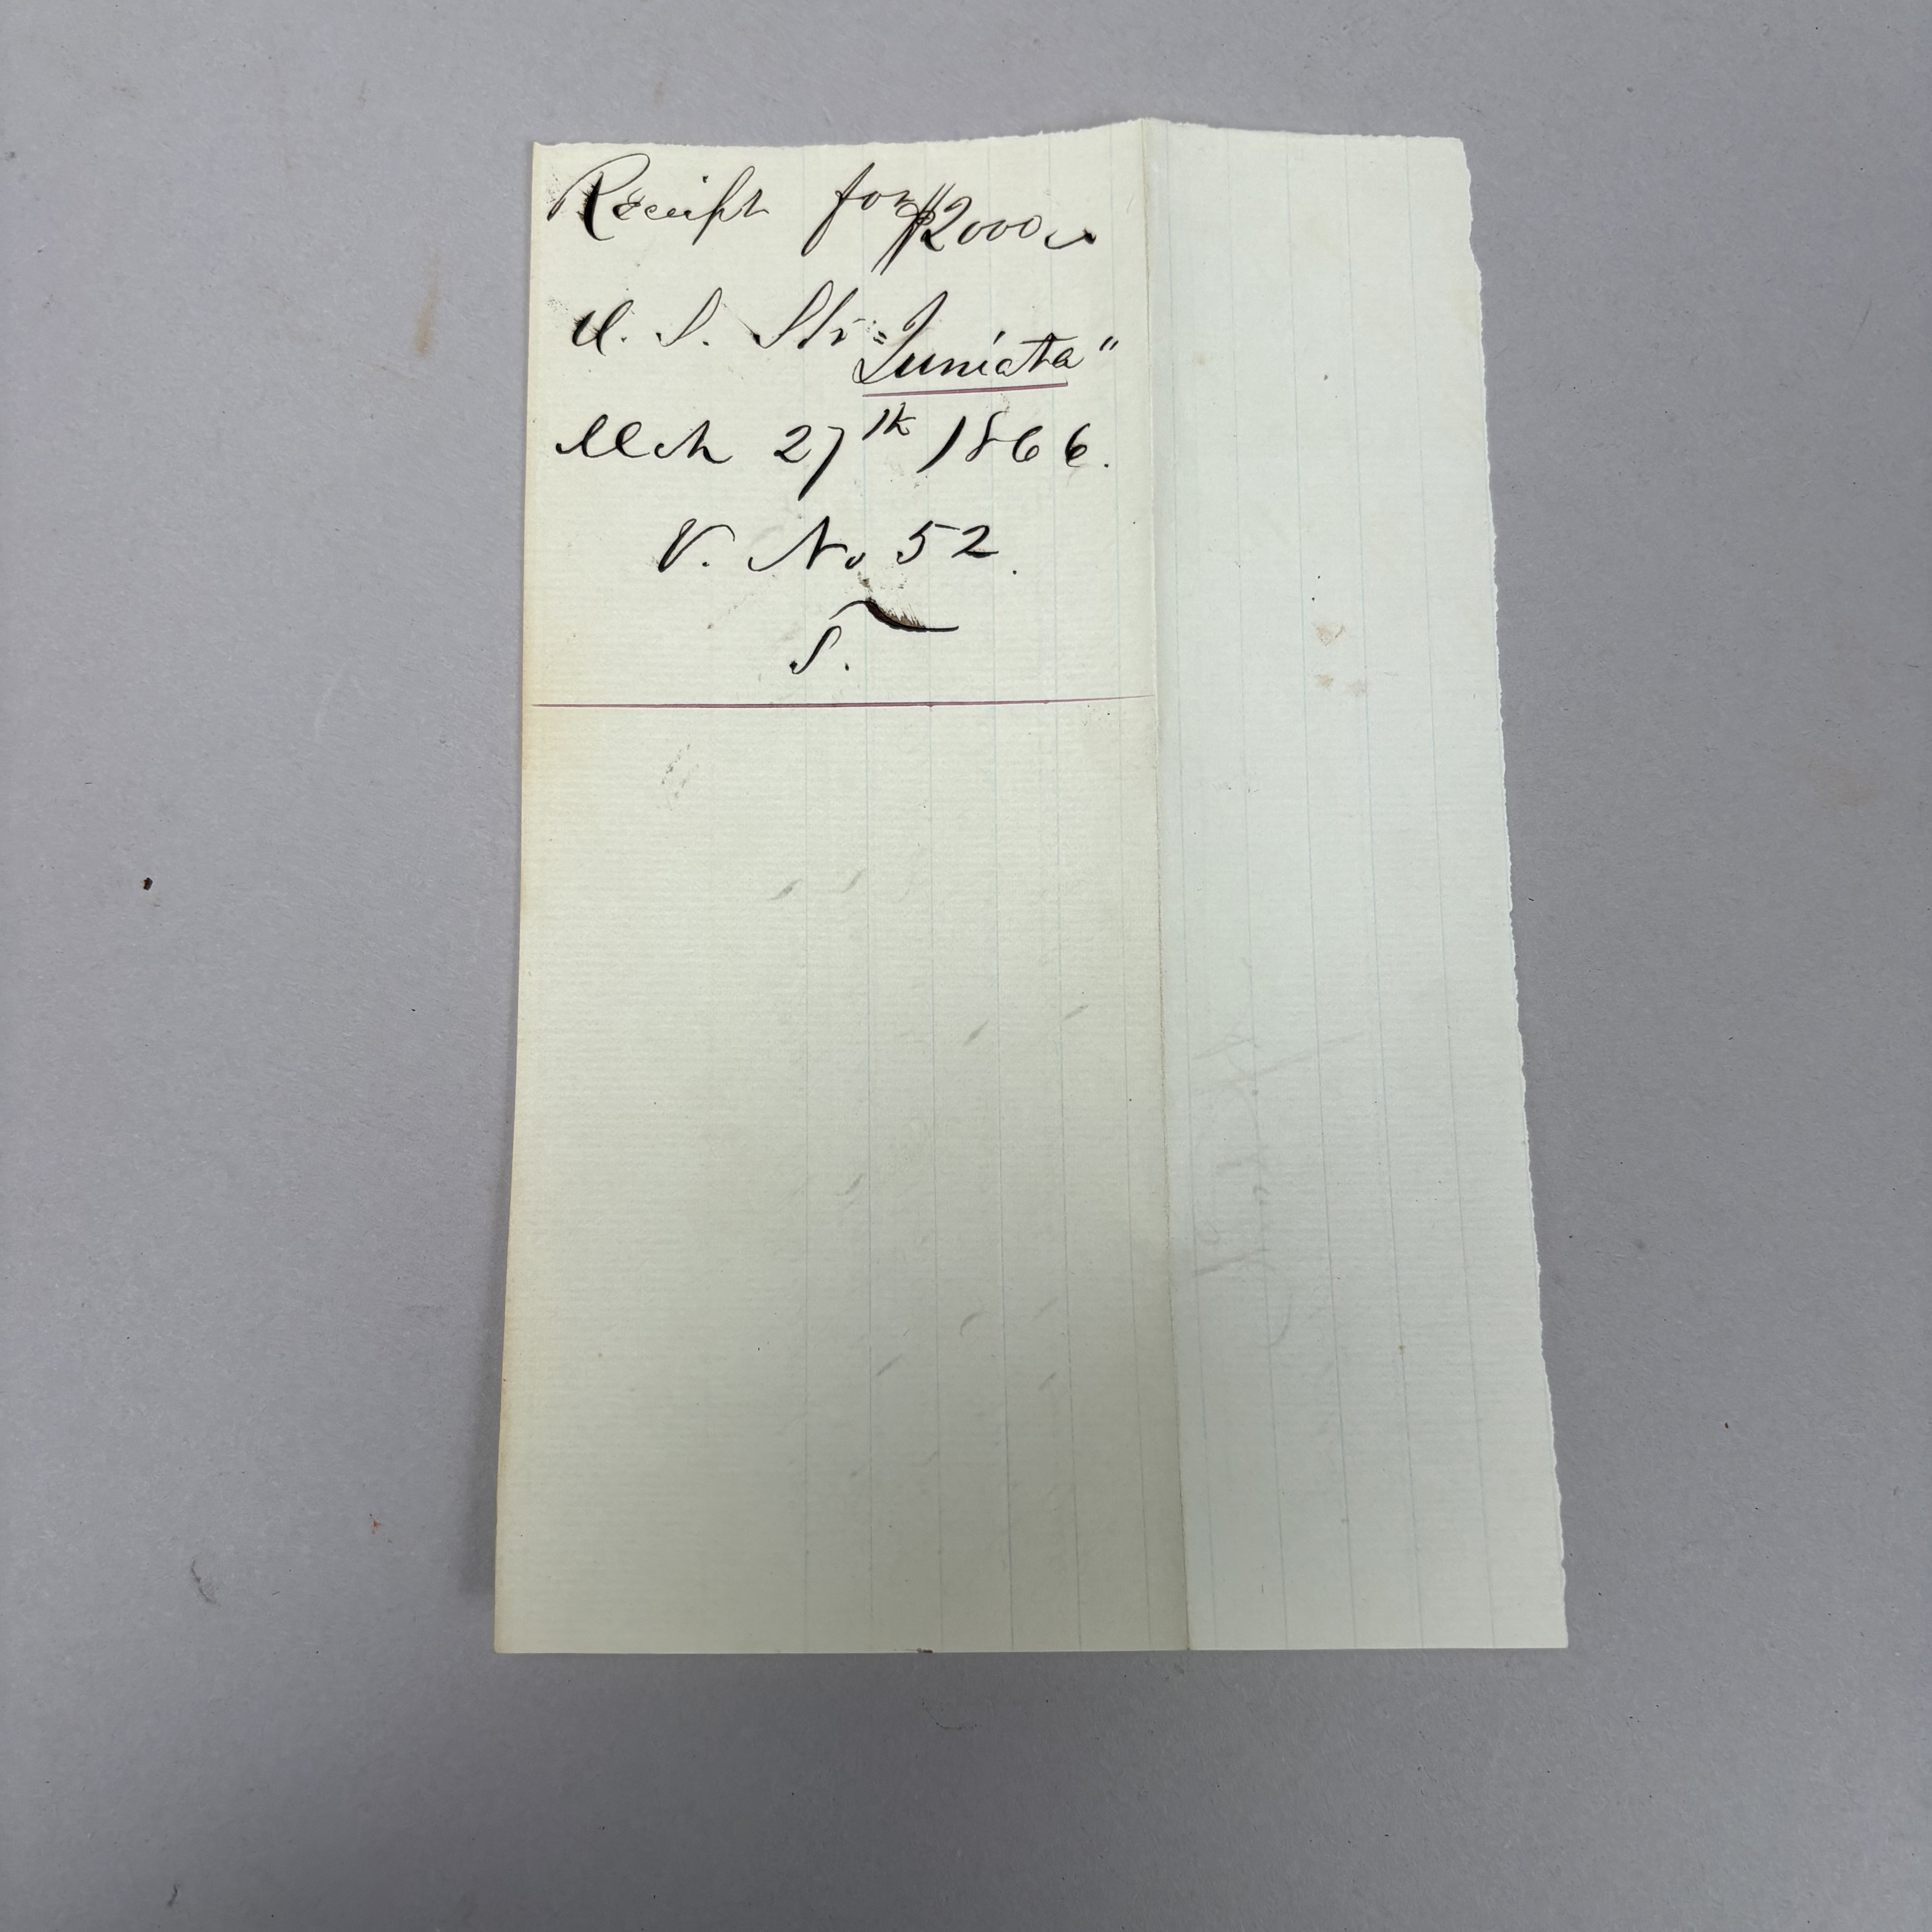 Receipt for $2000
U. S. Str "Juniata"
Mch 27th 1866.
V. No 52.
S.